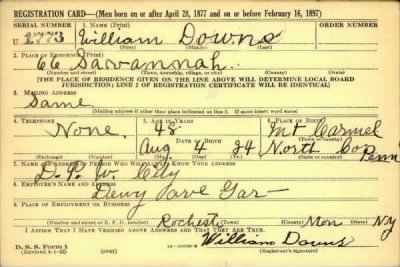 REGISTRATION CARD—(Men born on or after April 28, 1877 and on or before February 16, 1897)
SERIAL NUMBER
1. NAME (Print)
ORDER NUMBER
U 2773
William Downs
(First) (Middle) (Last)
2. PLACE OF RESIDENCE (Print)
66 Savannah
(Number and street) (Town, township, village, or city) (County) (State)
[THE PLACE OF RESIDENCE GIVEN ON THE LINE ABOVE WILL DETERMINE LOCAL BOARD
JURISDICTION; LINE 2 OF REGISTRATION CERTIFICATE WILL BE IDENTICAL]
3. MAILING ADDRESS
Same
[Mailing address if other than place indicated on line 2. If same insert word same]
4. TELEPHONE
5. AGE IN YEARS
6. PLACE OF BIRTH
None
48
Mt Carmel
(Town or county)
DATE OF BIRTH
Aug 4 84
North
Penn
(Exchange) (Number)
(Mo.) (Day) (Yr.)
(State or country)
7. NAME AND ADDRESS OF PERSON WHO WILL ALWAYS KNOW YOUR ADDRESS
D. P. W.
8. EMPLOYER'S NAME AND ADDRESS
9. PLACE OF EMPLOYMENT OR BUSINESS
Mon NY
(Number and street or R. F. D. number) (Town) (County) (State)
I AFFIRM THAT I HAVE VERIFIED ABOVE ANSWERS AND THAT THEY ARE TRUE.
D. S. S. Form 1
(Revised 4-1-42) (over)
William Downs
(Registrant's signature)